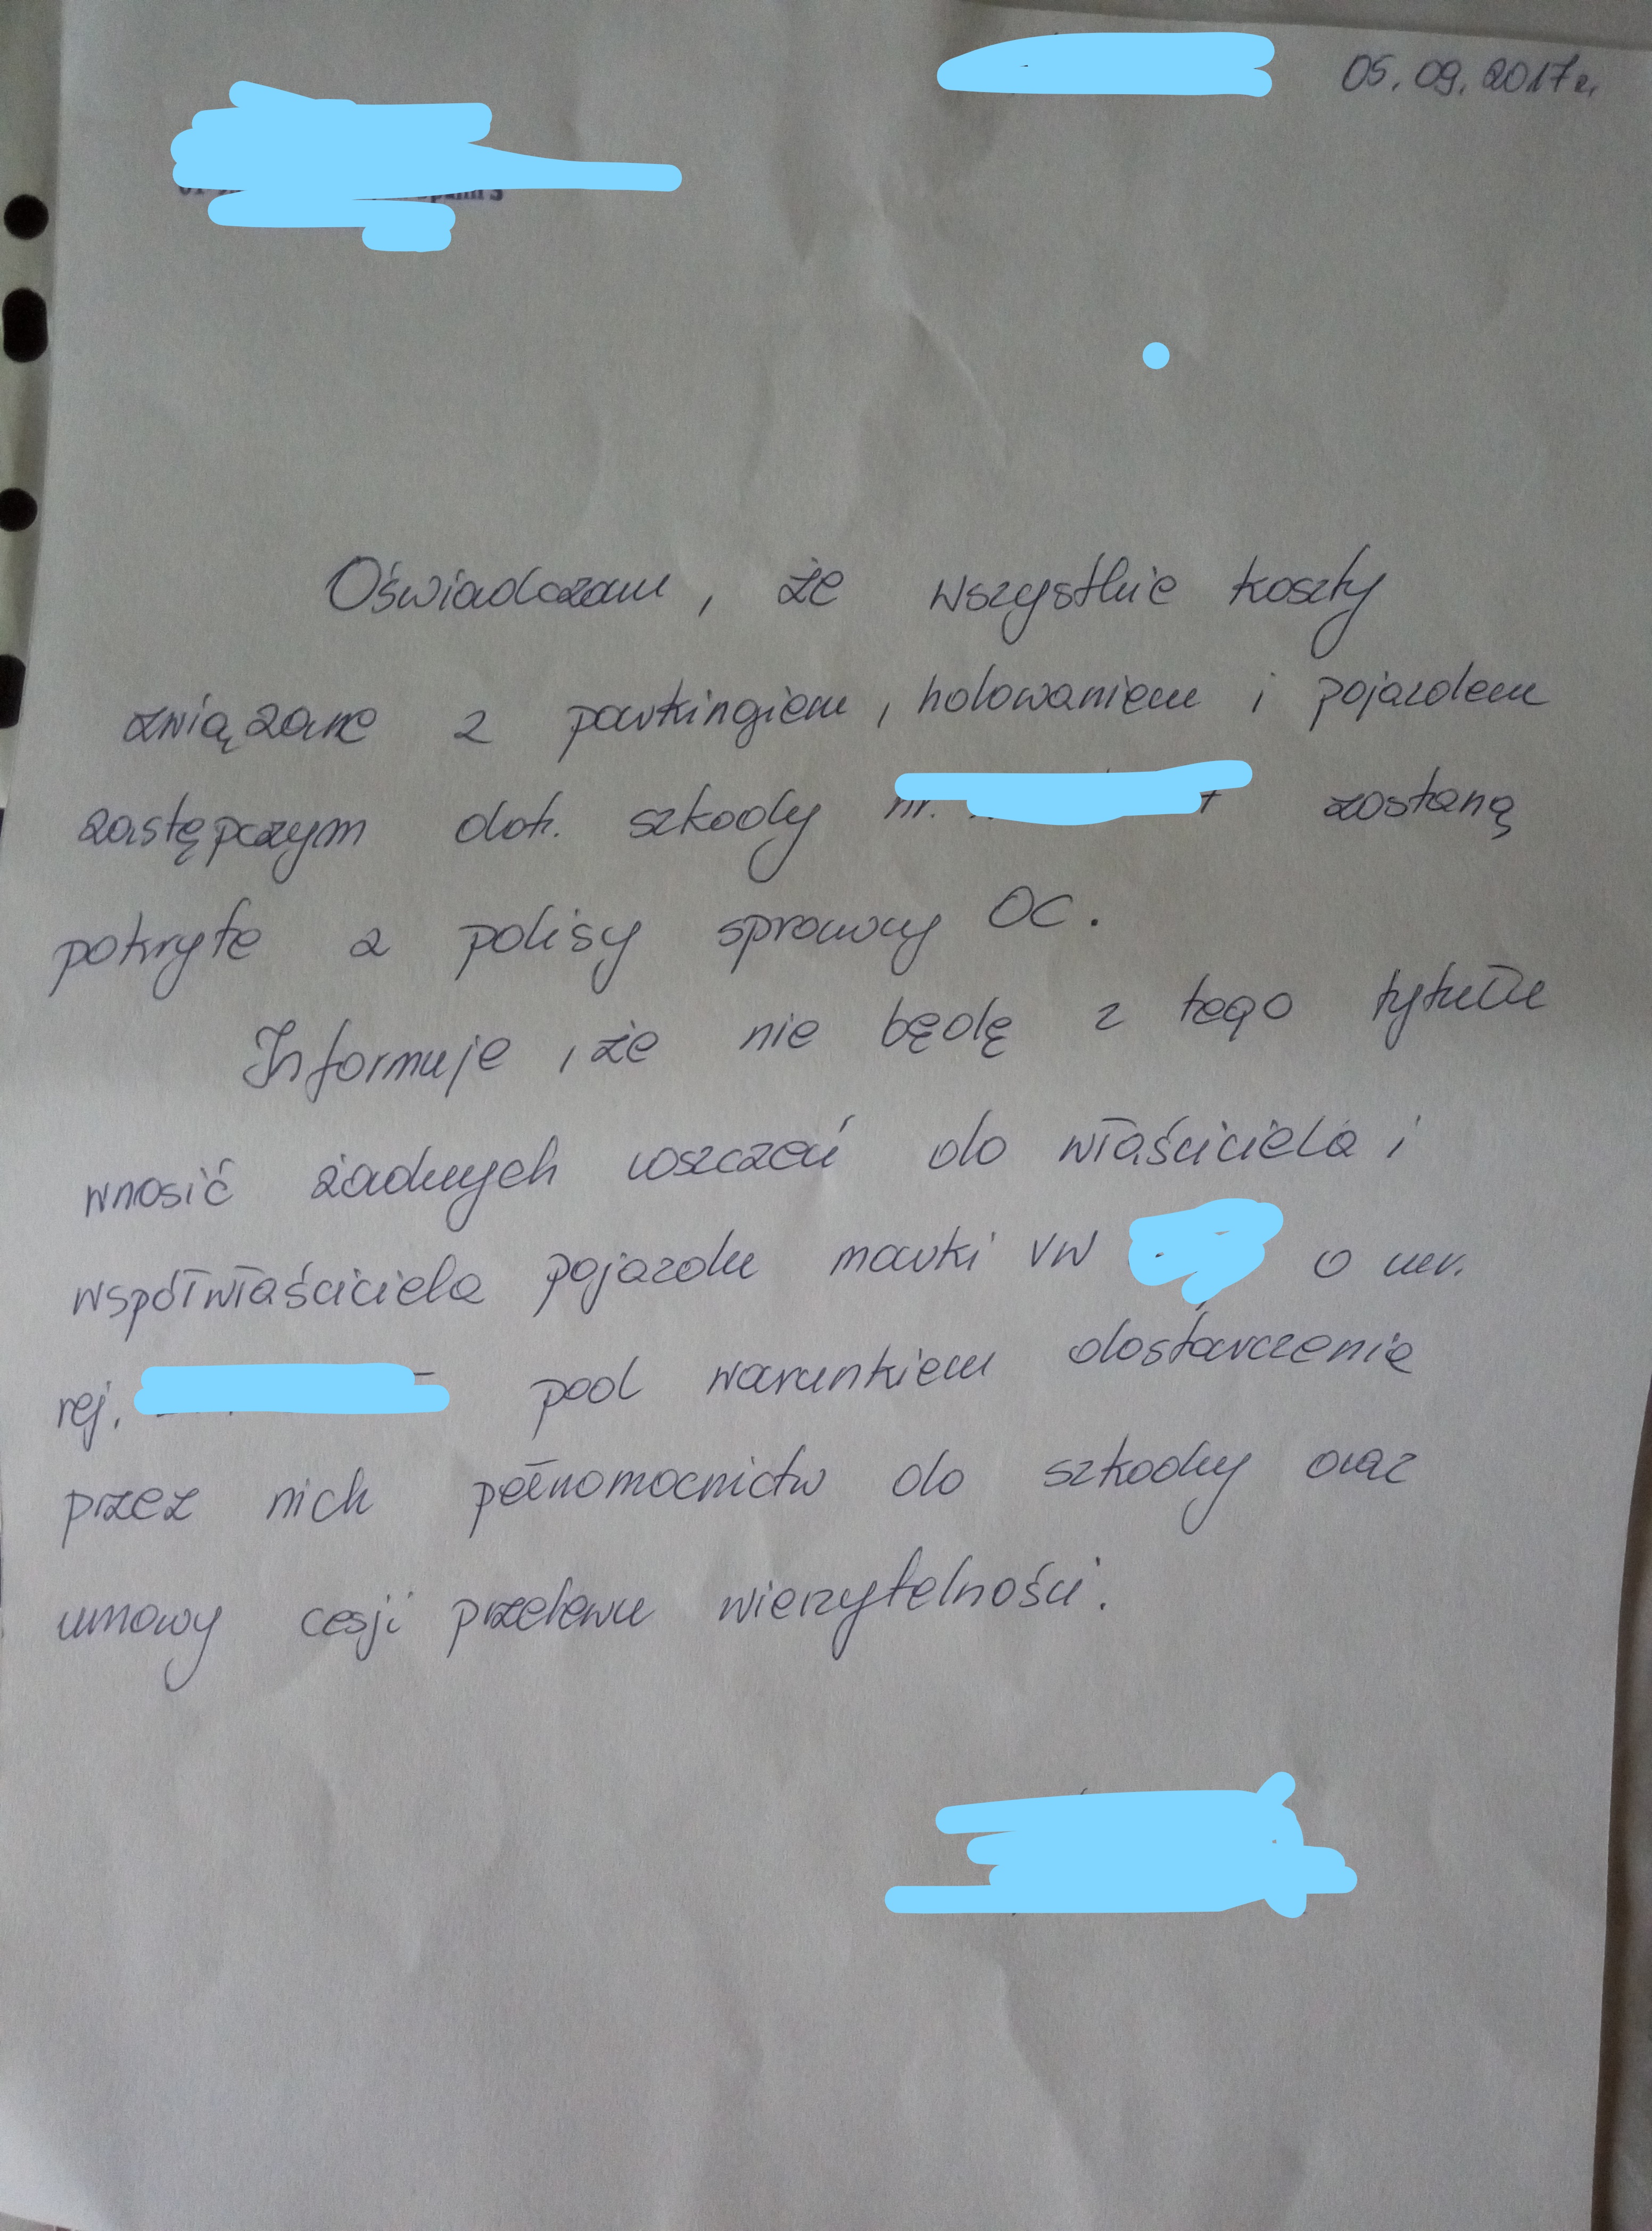 05.09.2017r.
Oświadczam, że wszystkie koszty
związane z parkingiem, holowaniem i pojazdem
zastępczym dot. szkody nr. zostaną
pokryte z polisy sprawcy OC.
Informuje, że nie będę z tego tytułu
wnosić żadnych roszczeń do właściciela i
współwłaściciela pojazdu marki VW o nr.
rej. pod warunkiem dostarczenia
przez nich pełnomocnictw do szkody oraz
umowy cesji przelewu wierzytelności.